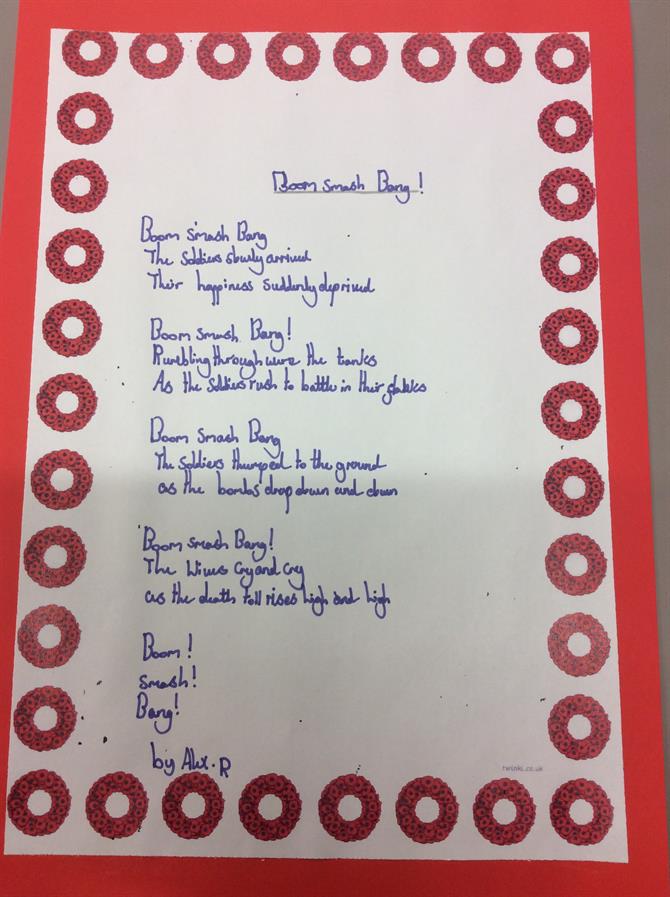 Boom smash Bang!
Boom smash Bang
The Soldiers slowly arrived
Their happiness suddenly deprived
Boom smash Bang!
Rumbling through were the tanks
As the Soldiers rush to battle in their
Boom smash Bang
The Soldiers thumped to the ground
as the bombs drop down and down
Boom smash Bang!
The Wives Cry and Cry
as the death toll rises high and high
Boom!
smash!
Bang!
by Alex.R
twinkl.co.uk